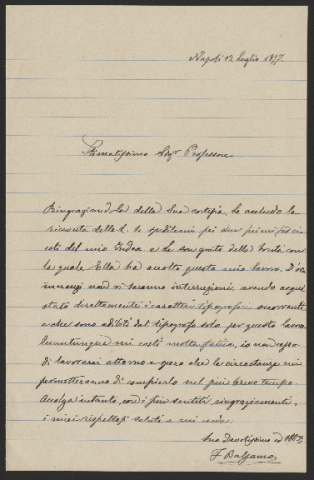 Napoli 12 luglio 1897.
Stimatissimo Sigr Professore
Ringraziandola della Sua cortesia, le accludo la
ricevuta delle £. speditemi pei due primi fasci
coli del mio Index e Le son grato della bontà con
la quale Ella ha accolto questo mio lavoro. D'ora
innanzi non vi saranno interruzioni avendo acqui
stato direttamente i caratteri tipografici occorrenti
e che sono adibiti dal tipografo solo per questo lavoro.
Quantunque mi costi molta fatica, io non cesso
di lavorarci attorno e spero che le circostanze mi
permetteranno di compierlo nel più breve tempo.
Accolga intanto, con i più sentiti ringraziamenti,
i miei rispettosi saluti e mi creda
Suo Devotissimo ed Obbl.
F. Balsamo